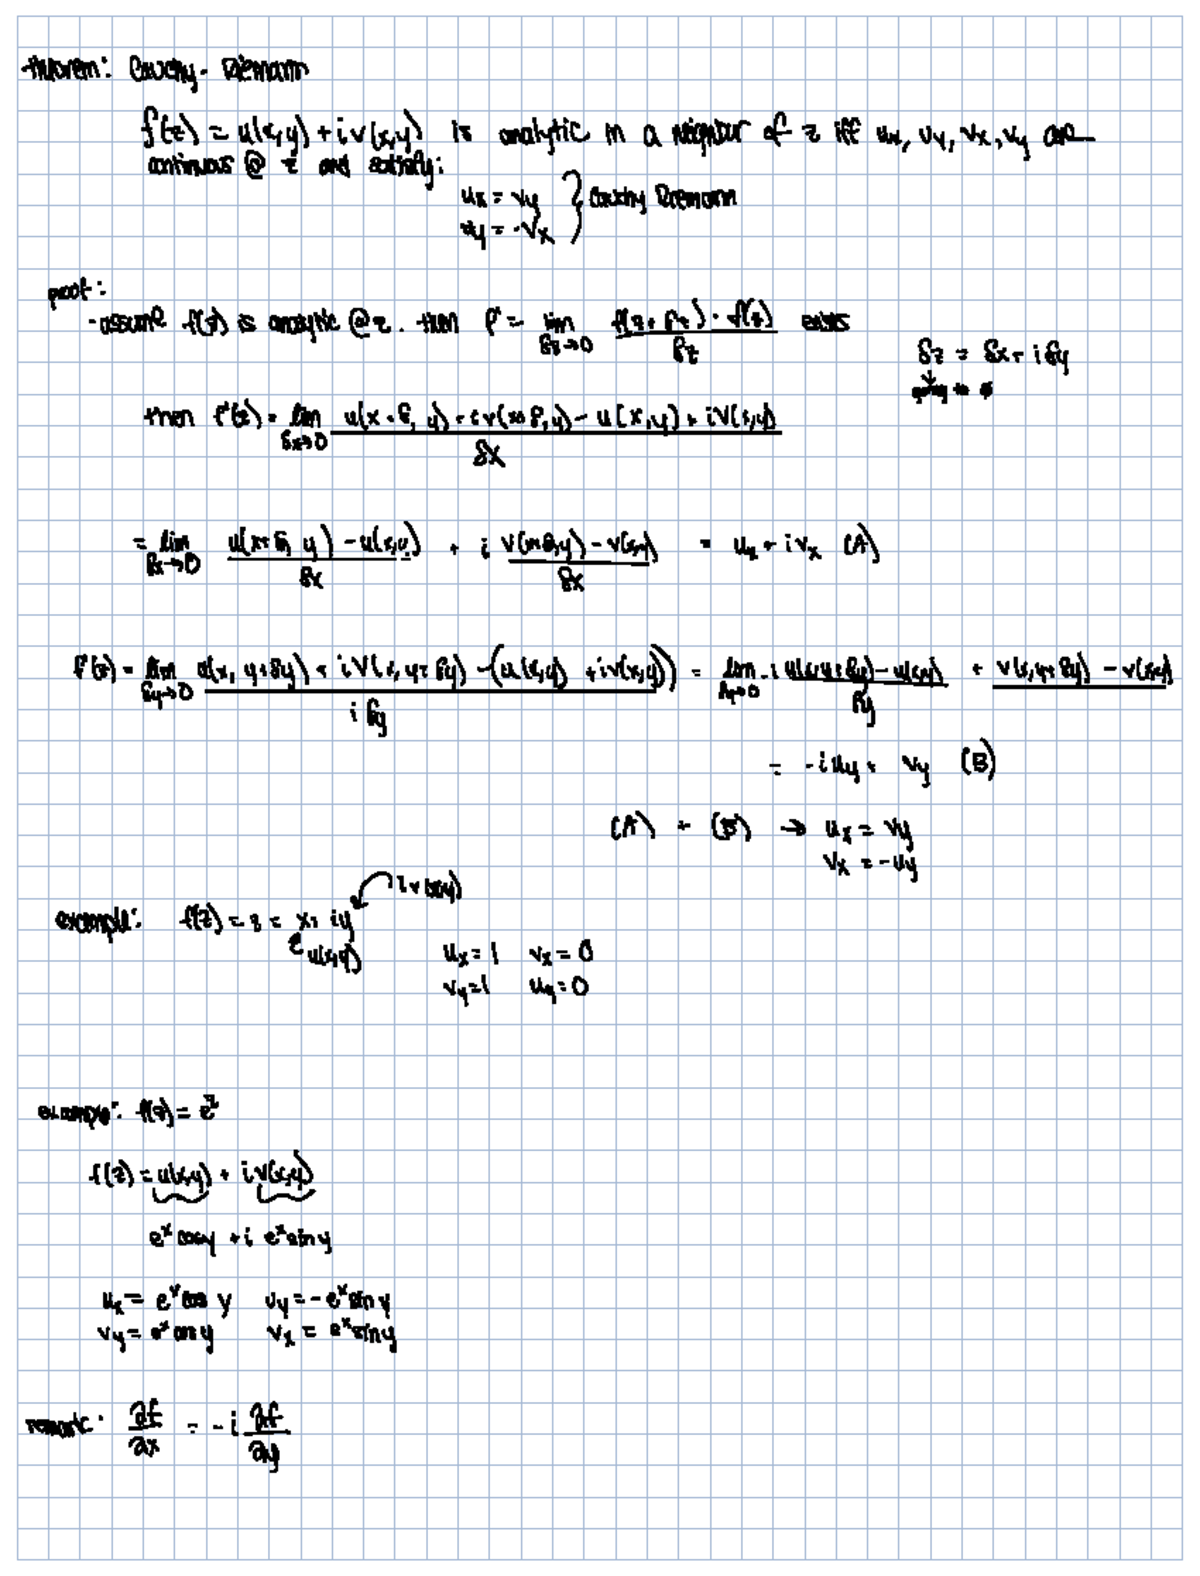 theorem: Cauchy-Riemann
f(z) = u(x,y) + iv(x,y) is analytic in a neighbor of z iff ux, uy, vx, vy are
continuous @ z and satisfy:
ux = vy } Cauchy Riemann
uy = -vx
proof:
- assume f(z) is analytic @ z. then f' = lim δz→0 f(z+δz) - f(z) / δz exists
δz = δx + iδy
↓
going to 0
then f'(z) = lim δx→0 u(x+δ, y) + iv(x+δ, y) - u(x,y) + iv(x,y) / δx
= lim δx→0 u(x+δ, y) - u(x,y) / δx + i v(x+δ,y) - v(x,y) / δx = ux + ivx (A)
f'(z) = lim δy→0 u(x, y+δy) + iv(x, y+δy) - (u(x,y) + iv(x,y)) / iδy = lim δy→0 -i u(x,y+δy) - u(x,y) / δy + v(x,y+δy) - v(x,y)
= -iuy + vy (B)
(A) + (B) → ux = vy
vx = -uy
iv(x,y)
example: f(z) = z = x + iy
u(x,y)
ux = 1 vx = 0
vy = 1 uy = 0
example: f(z) = e^z
f(z) = u(x,y) + iv(x,y)
e^x cosy + i e^x siny
ux = e^x cos y uy = -e^x sin y
vy = e^x cos y vx = e^x sin y
remark: ∂f/∂x = -i ∂f/∂y